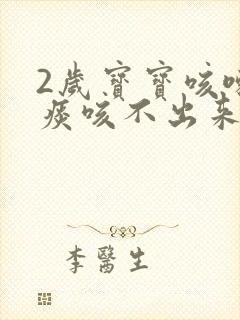 2歲寶寶咳
痰咳不出来
李醫生